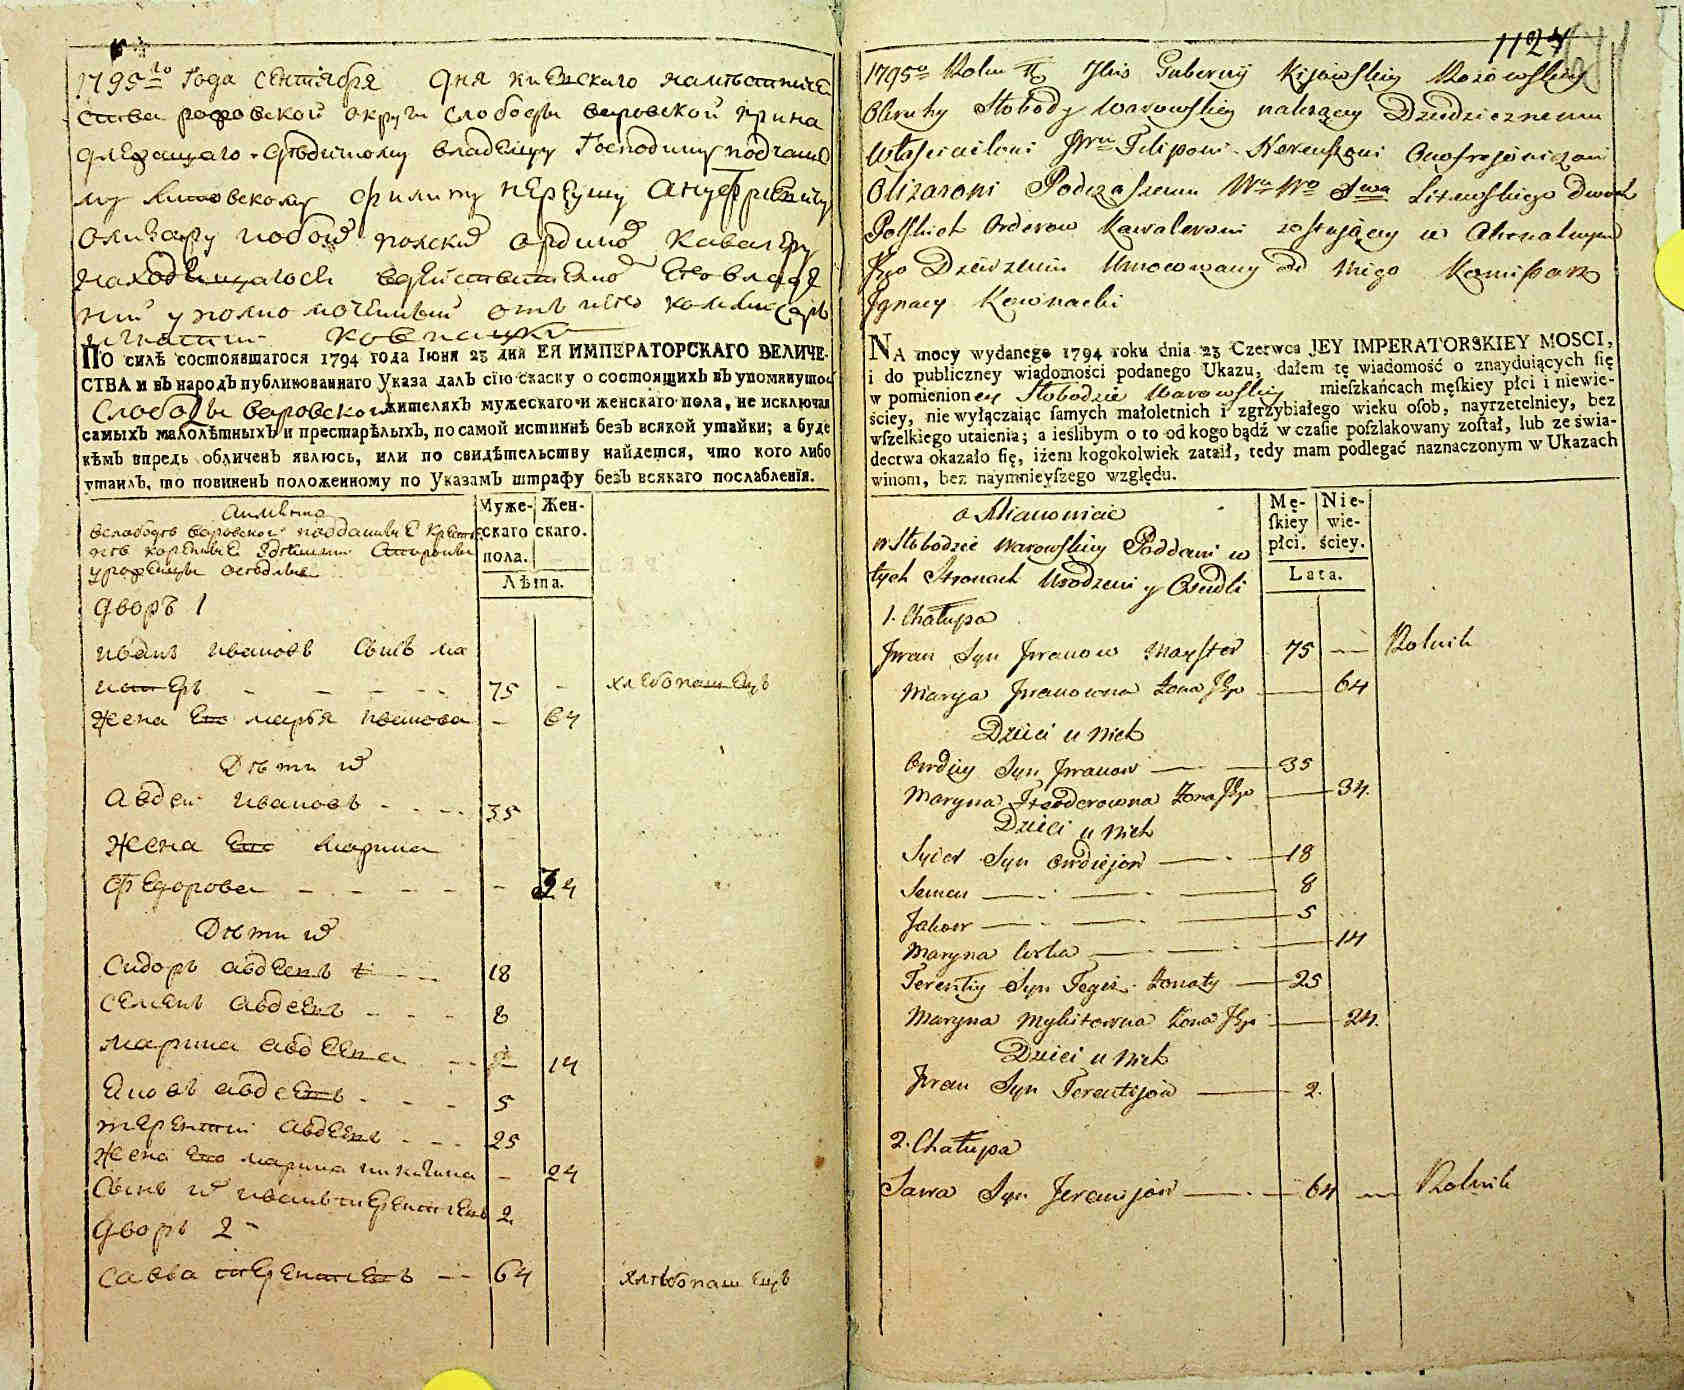 1795го Года сентября дня киевскаго намѣстниче
ства овской округи слободы варовской прина
длежащаго владелцу Господину подчаше
му Литовскому филипу нереушу ануфриевичу
олизару польских ординов кавалеру
находящагося
ний уполномоченный отъ него коммисаръ
игнатий ковнацки
ПО силѣ состоявшагося 1794 года Іюня 23 дня ЕЯ ИМПЕРАТОРСКАГО ВЕЛИЧЕ-
СТВА и въ народъ публикованнаго Указа далъ сію скаску о состоящихъ въ упомянутой
Слободы варовской жителяхъ мужескаго и женскаго пола, не исключая
самыхъ малолѣтныхъ и престарѣлыхъ, по самой истиннѣ безъ всякой утайки; а буде
кѣмъ впредь обличенъ явлюсь, или по свидѣтельству найдется, что кого либо
утаилъ, то повиненъ положенному по Указамъ штрафу безъ всякаго послабленія.
А имѣнно
вслободѣ варовской подданные
коренные здешнии
уроженцы оседлые
Муже-
скаго
пола.
Жен-
скаго.
Лѣта.
дворъ 1
иванъ ивановъ сынъ ма
75 -
жена его марья иванова - 64
Дѣти их
авдей ивановъ 35
жена его марина
федорова - 34
Дѣти их
сидоръ авдеевъ 18
семенъ авдеевъ 8
марина авдеева 14
яковъ авдеевъ 5
терентий авдеевъ 25
жена его марина никитина - 24
сынъ их иванъ терентиевъ 2
дворъ 2
савва 64 хлѣбопашецъ
1124
1795o Roku Guberniy Kijowskiey
Okruhy Słobody Warowskiey należący Dziedzicznemu
Włascicielowi Filipowi Nereuszowi Onofrejowiczowi
Olizarowi Podczaszemu Wo Wo Litewskiego Dwoch
Polskich Orderow Kawalerowi zostającey w Aktualnym
Jego Dzierzeniu Umocowany od niego Komisarz
Ignacy Kownacki
NA mocy wydanego 1794 roku dnia 23 Czerwca JEY IMPERATORSKIEY MOSCI,
i do publiczney wiadomości podanego Ukazu, dałem tę wiadomość o znayduiących ſię
w pomienioney Słobodzie Warowskiey mieſzkańcach męſkiey płci i niewie-
ściey, nie wyłączaiąc ſamych małoletnich i zgrzybiałego wieku oſob, nayrzetelniey, bez
wſzelkiego utaienia; a ieślibym o to od kogo bądź w czaſie poſzlakowany zoſtał, lub ze świa-
dectwa okazało ſię, iżem kogokolwiek zataił, tedy mam podlegać naznaczonym w Ukazach
winom, bez naymnieyſzego względu.
a Mianowicie
w Słobodzie Warowskiey Poddani w
tych Stronach Urodzeni y Osiedli
Mę-
ſkiey
płci.
Nie-
wie-
ściey.
Lata.
1. Chałupa
Jwan Syn Jwanow Mayster 75 — Rolnik
Marya Jwanowna Zona Jego — 64
Dzieci u nich
Owdiey Syn Jwanow — 35
Maryna Fteoderowna Zona Jego — 34.
Dzieci u nich
Sydor Syn Owdiejow — 18
Semen — 8
Jakow — 5
Maryna Corka — 14
Terentiy Syn Tegoż Zonaty — 25
Maryna Mykitowna Zona Jego — 24.
Dzieci u nich
Jwan Syn Terentijow — 2.
2. Chałupa
Sawa Syn — 64 — Rolnik